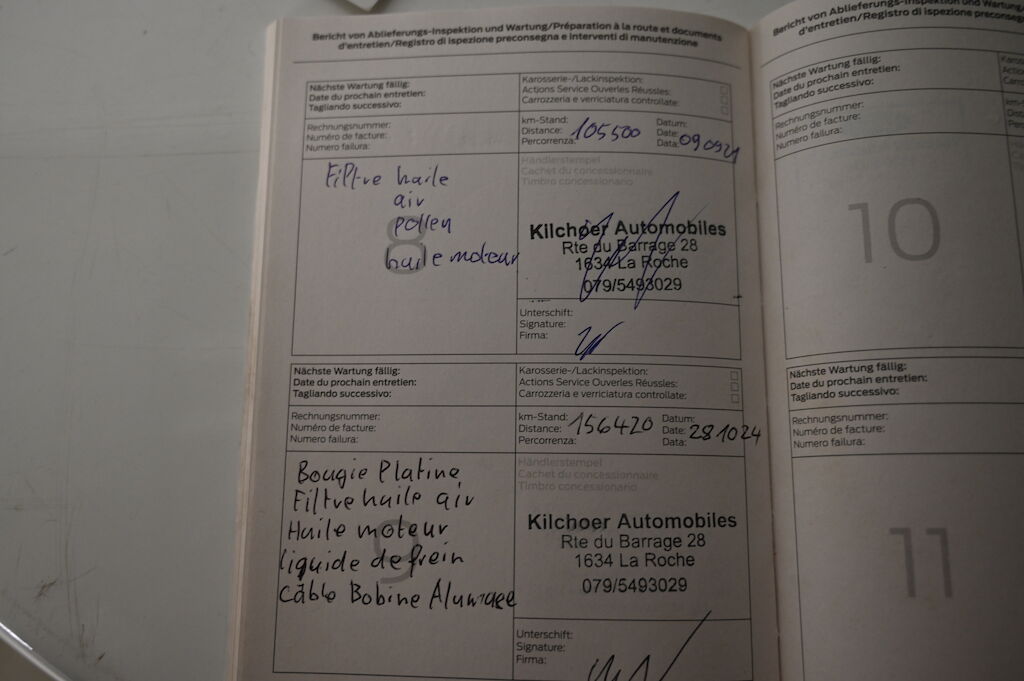 Bericht von Ablieferungs-Inspektion und Wartung/Préparation à la route et documents
d'entretien/Registro di ispezione preconsegna e interventi di manutenzione
Nächste Wartung fällig:
Date du prochain entretien:
Tagliando successivo:
Karosserie-/Lackinspektion:
Actions Service Ouverles Réussles:
Carrozzeria e verriciatura controllate:
Rechnungsnummer:
Numéro de facture:
Numero failura:
km-Stand:
Distance: 105500
Percorrenza:
Datum:
Date:
Data: 090921
Filtre huile
air
pollen
huile moteur
8
Händlerstempel
Cachet du concessionnaire
Timbro concessionano
Kilchoer Automobiles
Rte du Barrage 28
1634 La Roche
079/5493029
Unterschift:
Signature:
Firma:
Nächste Wartung fällig:
Date du prochain entretien:
Tagliando successivo:
Karosserie-/Lackinspektion:
Actions Service Ouverles Réussles:
Carrozzeria e verriciatura controllate:
Rechnungsnummer:
Numéro de facture:
Numero failura:
km-Stand:
Distance: 156420
Percorrenza:
Datum:
Date: 281024
Data:
Bougie Platine
Filtre huile air
Huile moteur
liquide de frein
Câble Bobine
9
Händlerstempel
Cachet du concessionnaire
Timbro concessionano
Kilchoer Automobiles
Rte du Barrage 28
1634 La Roche
079/5493029
Unterschift:
Signature:
Firma:
Bericht von Ablieferungs-Inspektion und Wartung
d'entretien/Registro di ispezione preconsegna
Nächste Wartung fällig:
Date du prochain entretien:
Tagliando successivo:
Rechnungsnummer:
Numéro de facture:
Numero failura:
10
Nächste Wartung fällig:
Date du prochain entretien:
Tagliando successivo:
Rechnungsnummer:
Numéro de facture:
Numero failura:
11